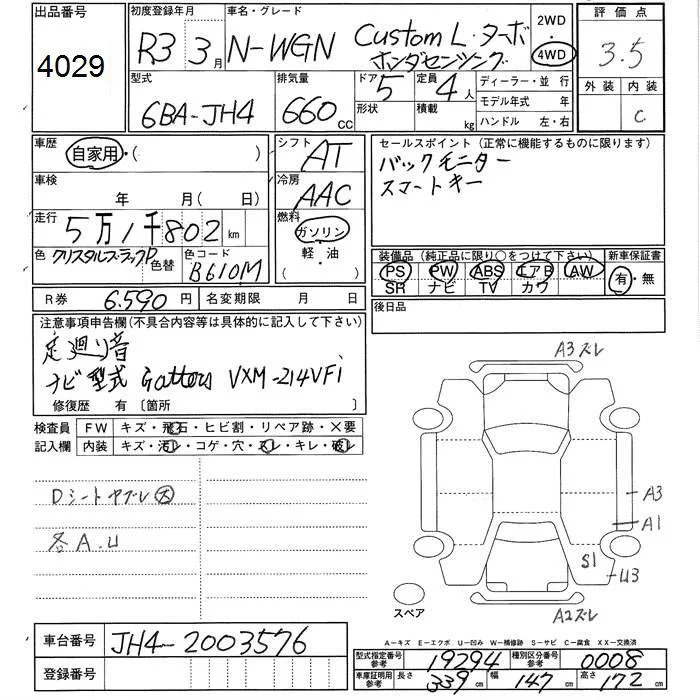 出品番号 4029
初度登録年月 R3 3月
車名・グレード N-WGN Custom L・ターボ ホンダセンシング
2WD 4WD
評価点 3.5
外装 内装 C
型式 6BA-JH4
排気量 660 CC
ドア 5 形状
定員 4人 積載 kg
ディーラー・並行
モデル年式 年
ハンドル 左・右
車歴 自家用・( )
シフト AT
車検 年 月( 日)
冷房 AAC
走行 5万1千802 km
燃料 ガソリン 軽・油 ( )
色 クリスタルブラックP 色替 色コード B610M
セールスポイント (正常に機能するものに限ります)
バックモニター
スマートキー
装備品 (純正品に限り○をつけて下さい) 新車保証書
PS PW ABS エアB AW 有・無
SR ナビ TV カワ
R券 6.590 円 名変期限 月 日
後日品
注意事項申告欄(不具合内容等は具体的に記入して下さい)
足廻り音
ナビ型式 Gathers VXM-214VFi
修復歴 有 [箇所 ]
検査員 FW キズ・飛石・ヒビ割・リペア跡・×要
記入欄 内装 キズ・汚レ・コゲ・穴・スレ・キレ・破レ
Dシートヤブレ大
各A.U
A3ズレ
A3
A1
S1
U3
A2ズレ
スペア
車台番号 JH4-2003576
登録番号
A-キズ E-エクボ U-凹み W-補修跡 S-サビ C-腐食 XX-交換済
型式指定番号 参考 19294 種別区分番号 参考 0008
車庫証明用 参考 長さ 339 cm 幅 147 cm 高さ 172 cm